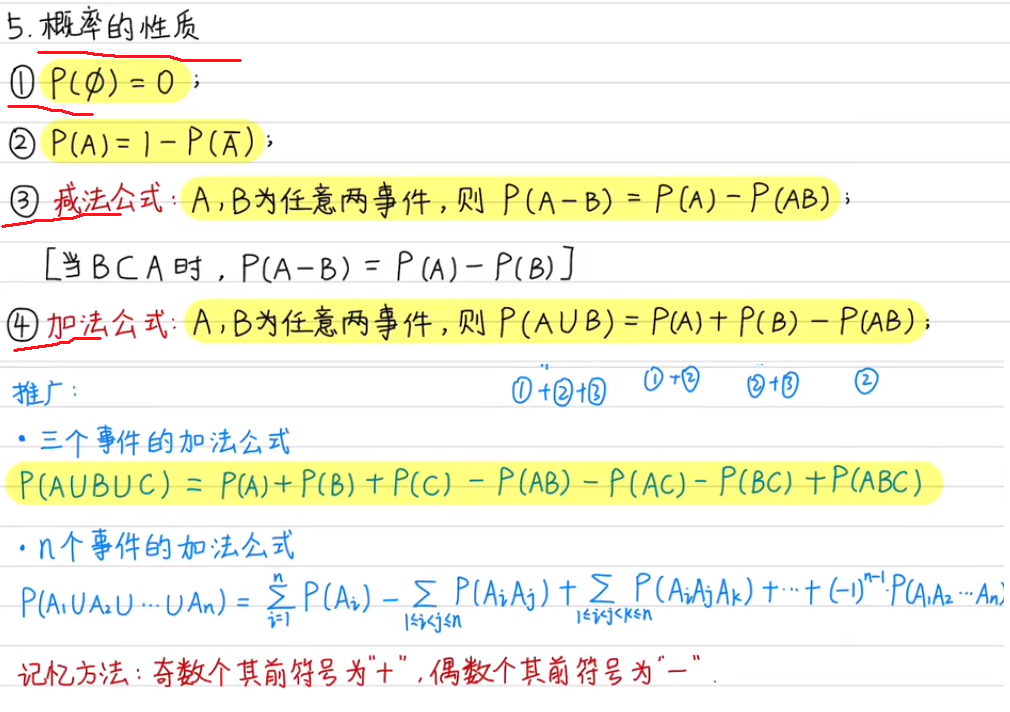 5. 概率的性质
① P(∅) = 0;
② P(A) = 1 − P(A̅);
③ 减法公式: A, B为任意两事件, 则 P(A−B) = P(A) − P(AB);
[当 B⊂A 时, P(A−B) = P(A) − P(B)]
④ 加法公式: A, B为任意两事件, 则 P(A∪B) = P(A) + P(B) − P(AB);
①+②+③ ①+② ②+③ ②
推广:
• 三个事件的加法公式
P(A∪B∪C) = P(A) + P(B) + P(C) − P(AB) − P(AC) − P(BC) + P(ABC)
• n个事件的加法公式
P(A₁∪A₂∪⋯∪Aₙ) = ∑ᵢ₌₁ⁿ P(Aᵢ) − ∑_{1≤i<j≤n} P(AᵢAⱼ) + ∑_{1≤i<j<k≤n} P(AᵢAⱼAₖ) + ⋯ + (−1)ⁿ⁻¹·P(A₁A₂⋯Aₙ)
记忆方法: 奇数个其前符号为"+", 偶数个其前符号为"−".